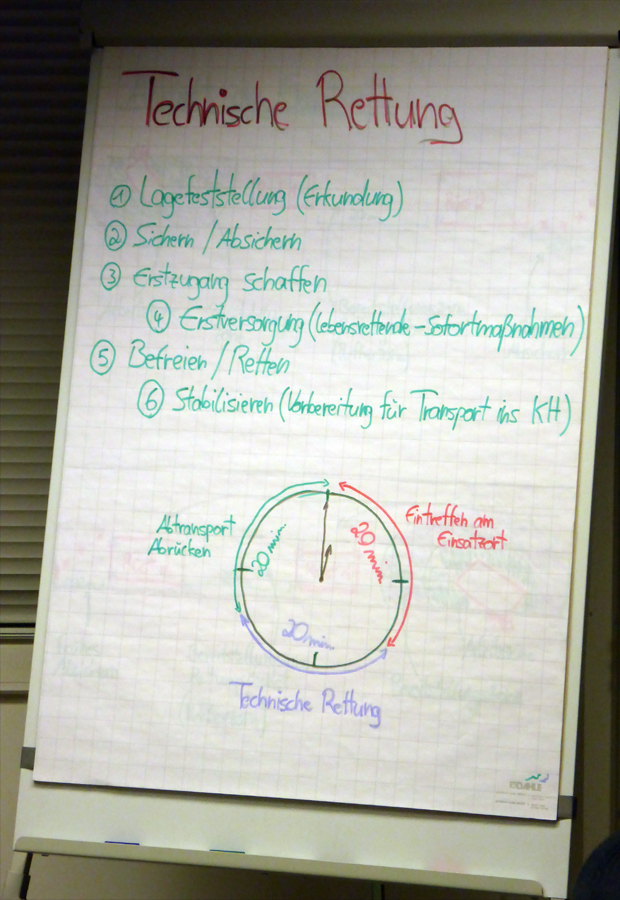 Technische Rettung
① Lagefeststellung (Erkundung)
② Sichern / Absichern
③ Erstzugang schaffen
④ Erstversorgung (lebensrettende - Sofortmaßnahmen)
⑤ Befreien / Retten
⑥ Stabilisieren (Vorbereitung für Transport ins KH)
Abtransport
Abrücken
20 min.
20 min
Eintreffen am
Einsatzort
20 min
Technische Rettung
DAHLE